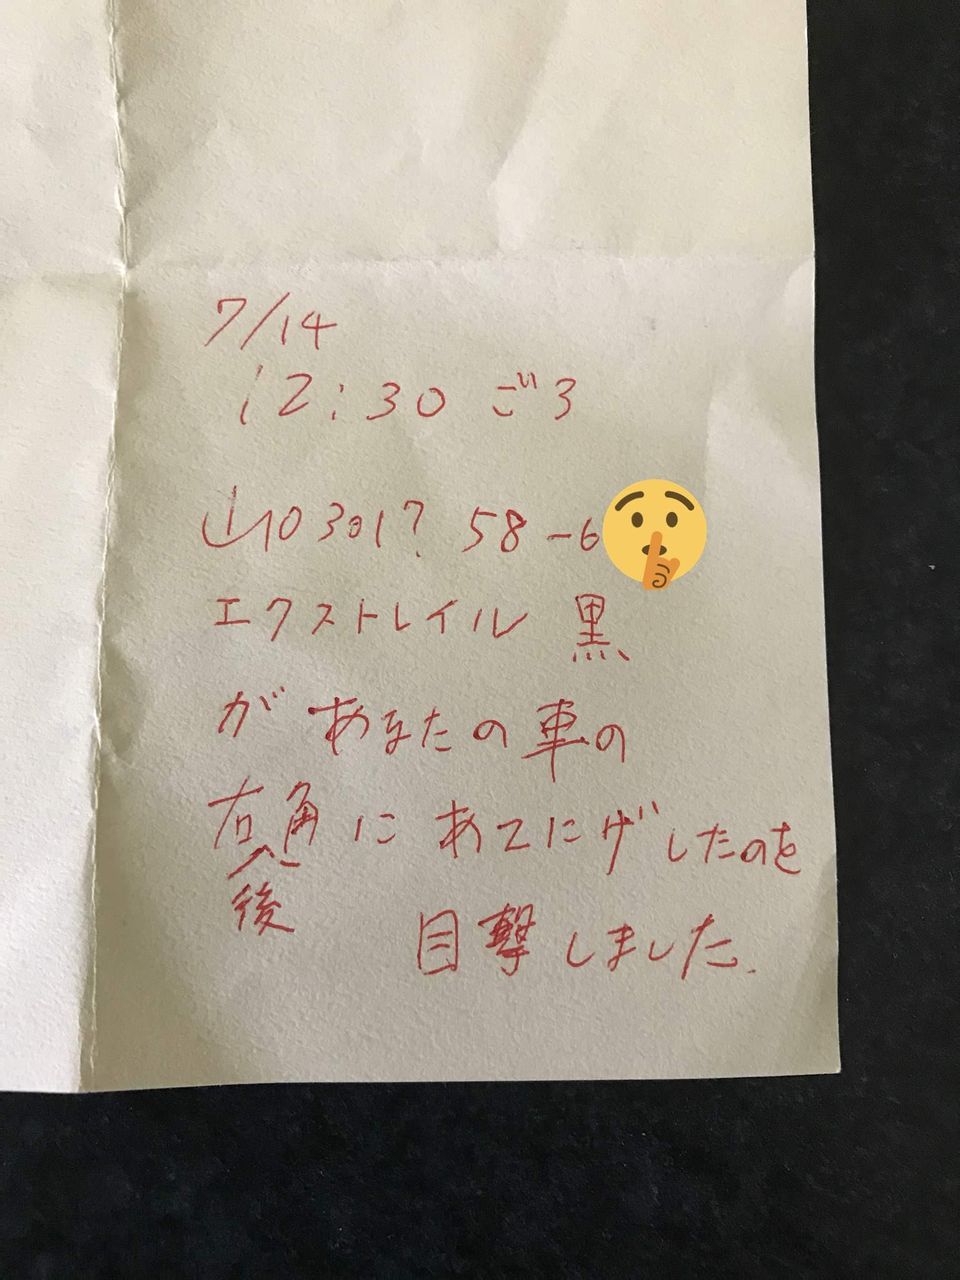 7/14
12:30 ごろ
山口301? 58-6
エクストレイル 黒
があなたの車の
右後角にあてにげしたのを
目撃しました.